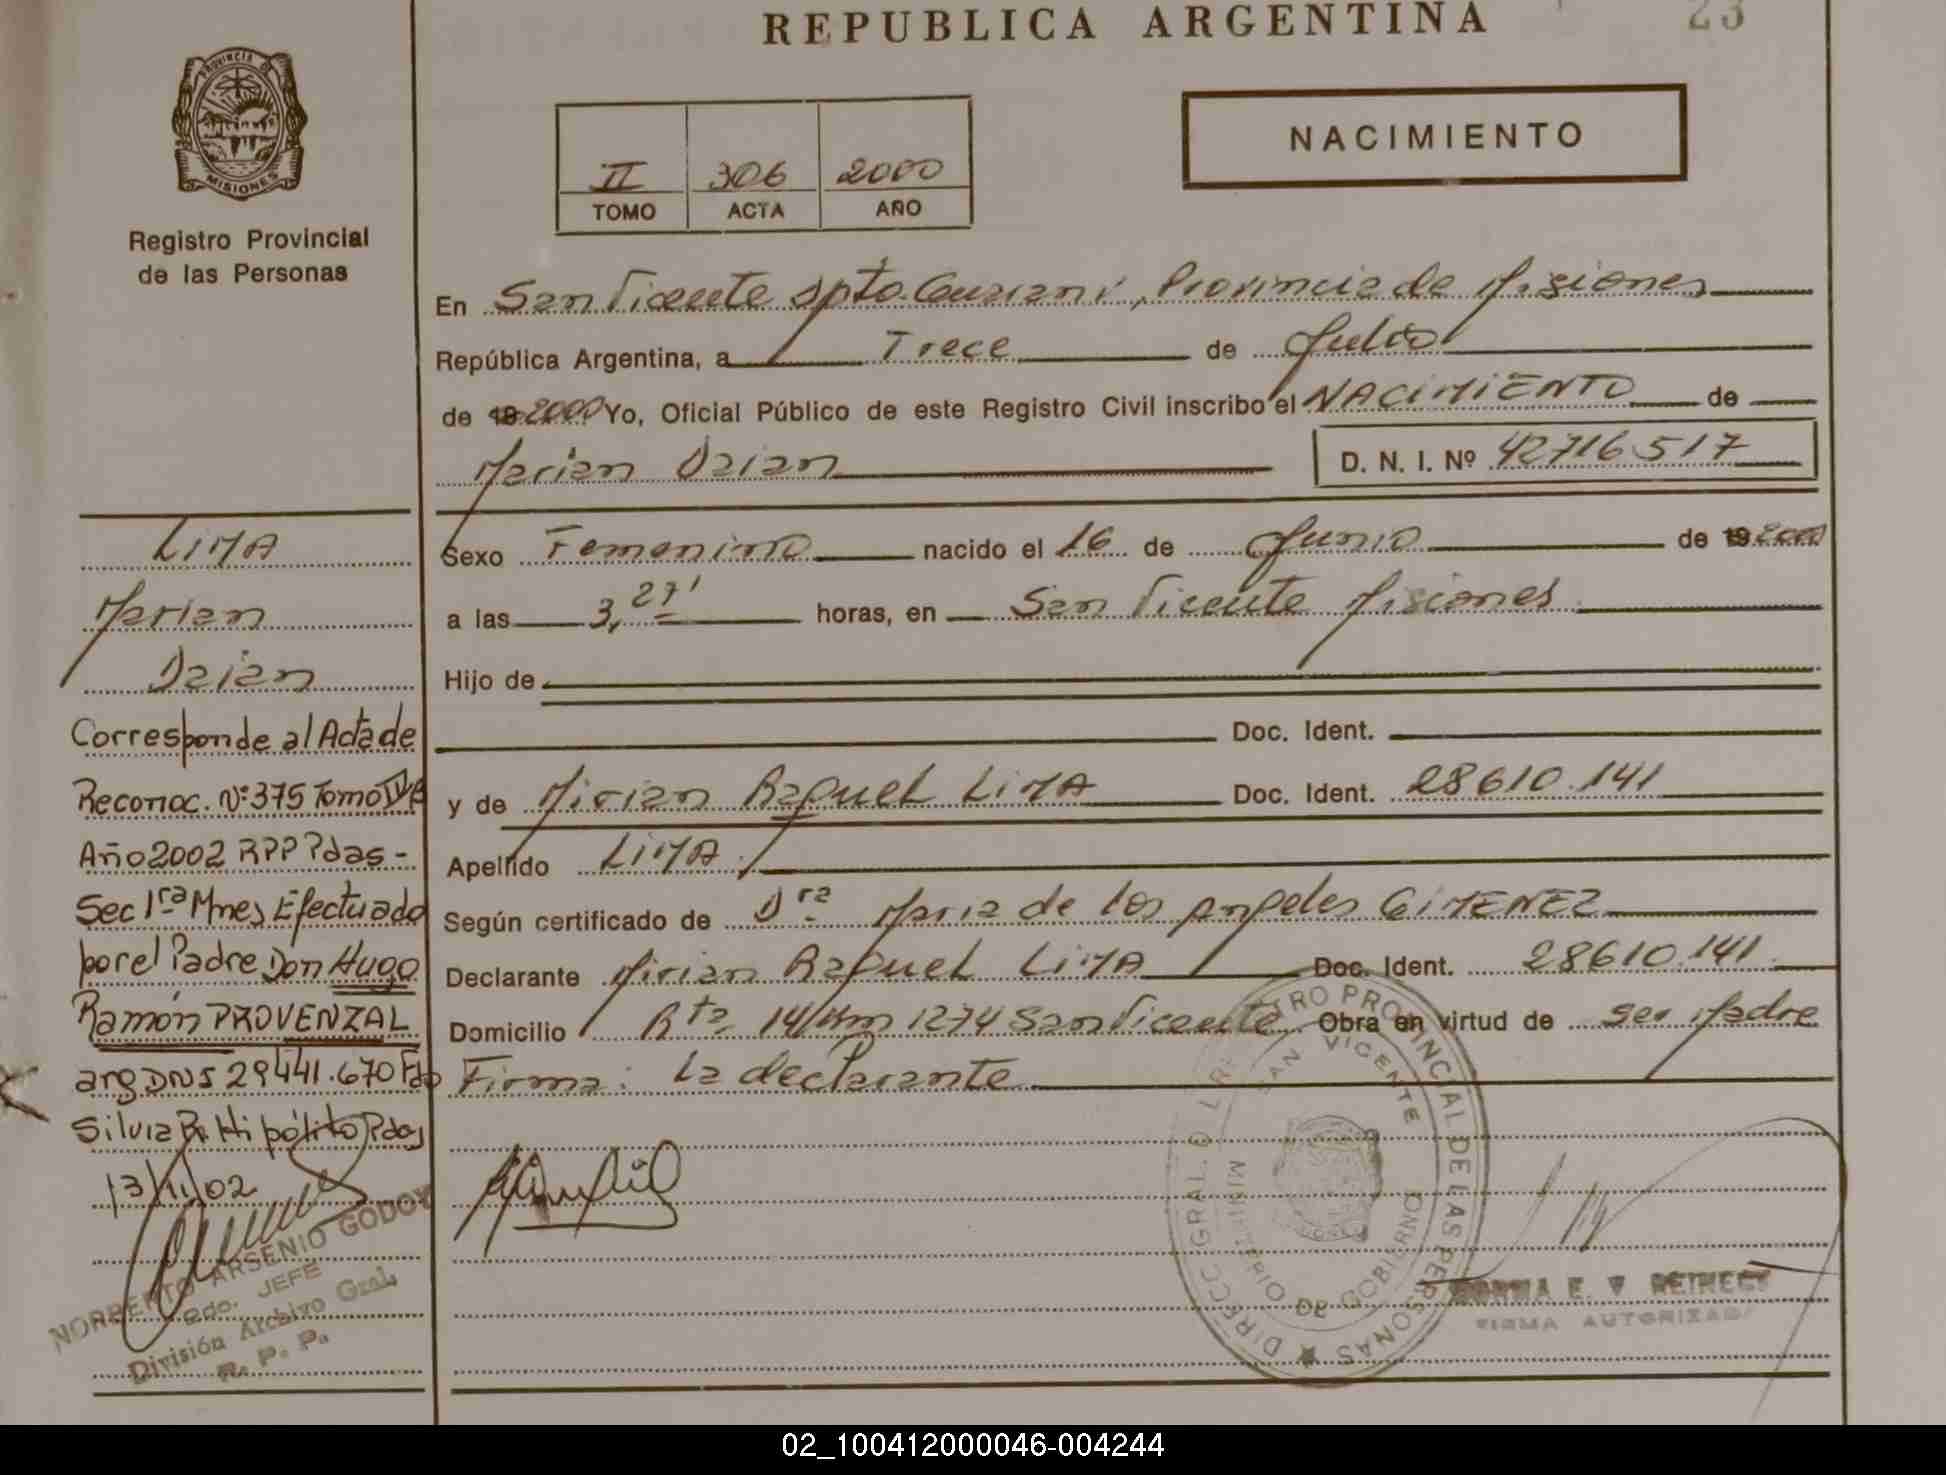 REPUBLICA ARGENTINA
23
PROVINCIA DE
MISIONES
Registro Provincial
de las Personas
II 306 2000
TOMO ACTA AÑO
NACIMIENTO
En San Vicente Dpto. Guarani, Provincia de Misiones
República Argentina, a Trece de Julio
de 19 2000 Yo, Oficial Público de este Registro Civil inscribo el NACIMIENTO de
Marian Daian D. N. I. Nº 42716517
Sexo Femenino nacido el 16 de Junio de 19 2000
a las 3,27' horas, en San Vicente Misiones
Hijo de
Doc. Ident.
y de Mirian Raquel LIMA Doc. Ident. 28610.141
Apellido LIMA.
Según certificado de Dra Maria de los Angeles GIMENEZ
Declarante Mirian Raquel LIMA Doc. Ident. 28610.141
Domicilio Rta 14 Km 1274 San Vicente Obra en virtud de ser Madre
Firma: La declarante
LIMA
Marian
Daian
Corresponde al Acta de
Reconoc. Nº 375 Tomo
Año 2002 RPP Pdas-
Sec 1ra Mnes Efectuado
por el Padre Don Hugo
Ramón PROVENZAL
arg DNI 29441.670 Fdo
Silvia R. Hipólito Pdas
13/11/02
NORBERTO ARSENIO GODOY
2do. JEFE
División Archivo Gral.
R. P. P.
DIRECC GRAL. D L REGISTRO PROVINCIAL DE LAS PERSONAS
SAN VICENTE
MINISTERIO DE GOBIERNO
NORMA E. V REINECK
FIRMA AUTORIZADA
02_100412000046-004244